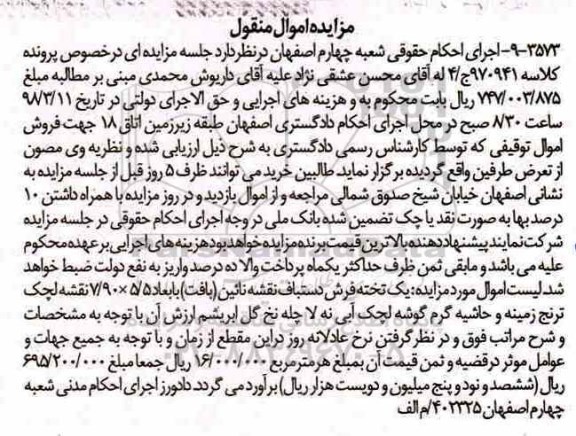 مزایده اموال منقول
۹-۳۵۷۳- اجرای احکام حقوقی شعبه چهارم اصفهان در نظر دارد جلسه مزایده ای در خصوص پرونده
کلاسه ۹۷۰۹۴۱ج/۴ له آقای محسن عشقی نژاد علیه آقای داریوش محمدی مبنی بر مطالبه مبلغ
۷۴۷/۰۰۳/۸۷۵ ریال بابت محکوم به و هزینه های اجرایی و حق الاجرای دولتی در تاریخ ۹۸/۳/۱۱
ساعت ۸/۳۰ صبح در محل اجرای احکام دادگستری اصفهان طبقه زیرزمین اتاق ۱۸ جهت فروش
اموال توقیفی که توسط کارشناس رسمی دادگستری به شرح ذیل ارزیابی شده و نظریه وی مصون
از تعرض طرفین واقع گردیده برگزار نماید. طالبین خرید می توانند ظرف ۵ روز قبل از جلسه مزایده به
نشانی اصفهان خیابان شیخ صدوق شمالی مراجعه و از اموال بازدید و در روز مزایده با همراه داشتن ۱۰
درصد بها به صورت نقد یا چک تضمین شده بانک ملی در وجه اجرای احکام حقوقی در جلسه مزایده
شرکت نمایند پیشنهاد دهنده بالاترین قیمت برنده مزایده خواهد بود هزینه های اجرایی بر عهده محکوم
علیه می باشد و مابقی ثمن ظرف حداکثر یکماه پرداخت والا ده درصد واریز به نفع دولت ضبط خواهد
شد. لیست اموال مورد مزایده: یک تخته فرش دستباف نقشه نائین (بافت) با ابعاد ۵/۵ × ۷/۹۰ نقشه لچک
ترنج زمینه و حاشیه گرم گوشه لچک آبی نه لا چله نخ گل ابریشم ارزش آن با توجه به مشخصات
و شرح مراتب فوق و در نظر گرفتن نرخ عادلانه روز در این مقطع از زمان و با توجه به جمیع جهات و
عوامل موثر در قضیه و ثمن قیمت آن بمبلغ هر متر مربع ۱۶/۰۰۰/۰۰۰ ریال جمعا مبلغ ۶۹۵/۲۰۰/۰۰۰
ریال (ششصد و نود و پنج میلیون و دویست هزار ریال) برآورد می گردد. دادورز اجرای احکام مدنی شعبه
چهارم اصفهان ۴۰۲۳۲۵/م الف